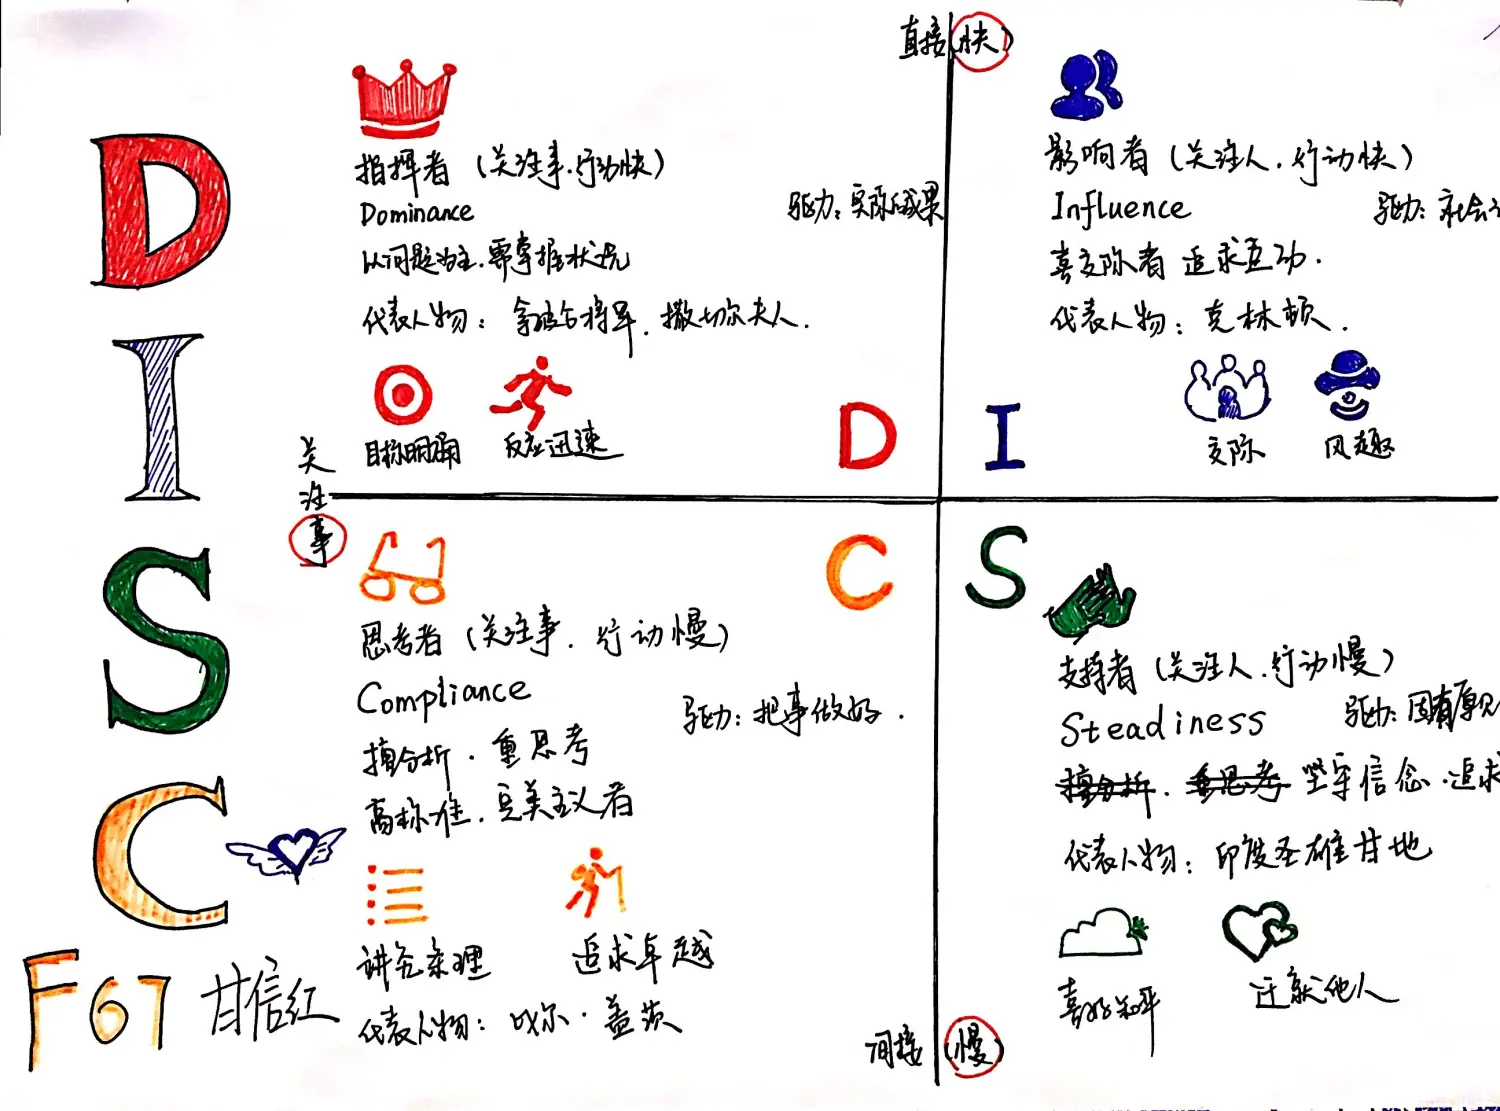 D
I
S
C
F67 甘信红
直接(快)
关注事
间接(慢)
指挥者(关注事.行动快)
Dominance
驱力:实际成果
以问题为主.需掌握状况
代表人物:拿破仑将军.撒切尔夫人.
目标明确
反应迅速
D
影响者(关注人.行动快)
Influence
驱力:社会
喜交际者 追求互动.
代表人物:克林顿.
交际
风趣
I
C
思考者(关注事.行动慢)
Compliance
驱力:把事做好.
擅分析.重思考
高标准.完美主义者
讲究条理
追求卓越
代表人物:比尔·盖茨
S
支持者(关注人.行动慢)
Steadiness
驱力:固有原
擅分析.重思考 坚守信念.追求
代表人物:印度圣雄甘地
喜好和平
迁就他人